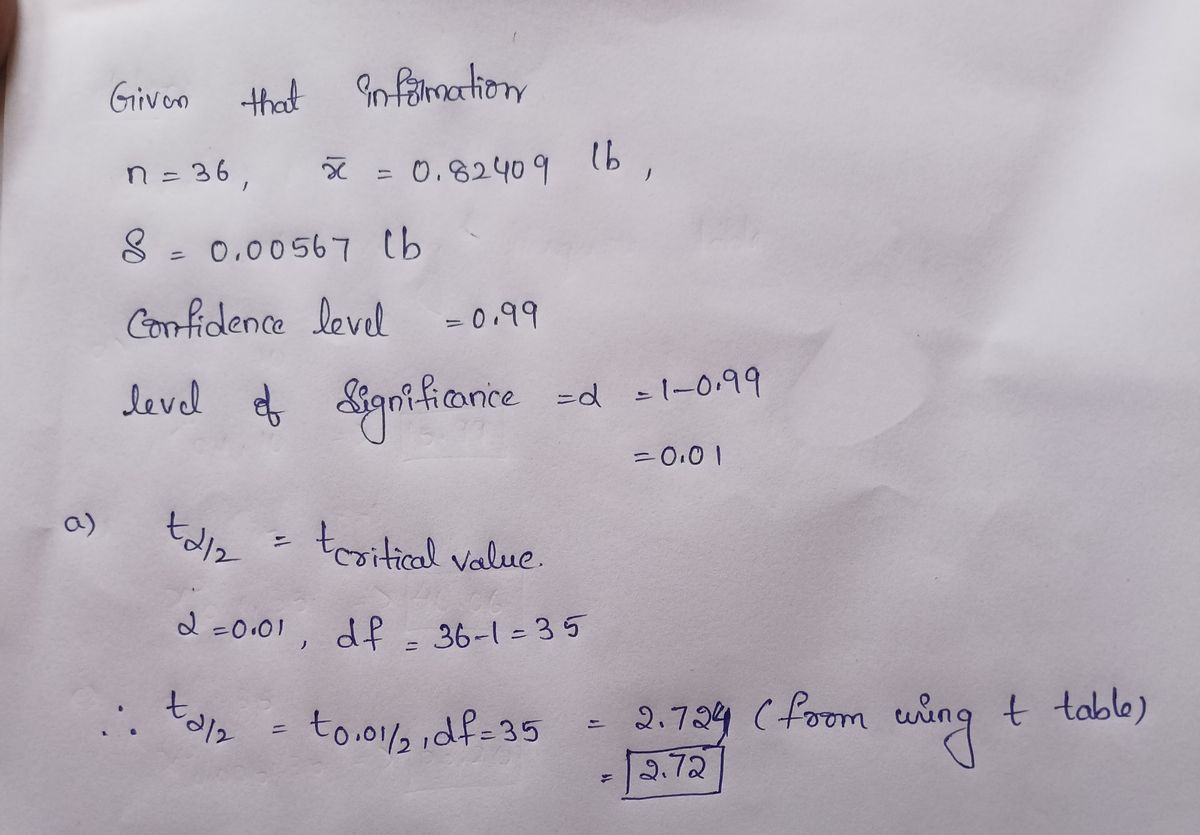 Given that information
n = 36, x̄ = 0.82409 lb,
S = 0.00567 lb
Confidence level = 0.99
level of Significance = α = 1-0.99
= 0.01
a) tα/2 = tcritical value.
α = 0.01, df = 36-1 = 35
∴ tα/2 = t0.01/2, df=35 = 2.724 (from using t table)
= 2.72